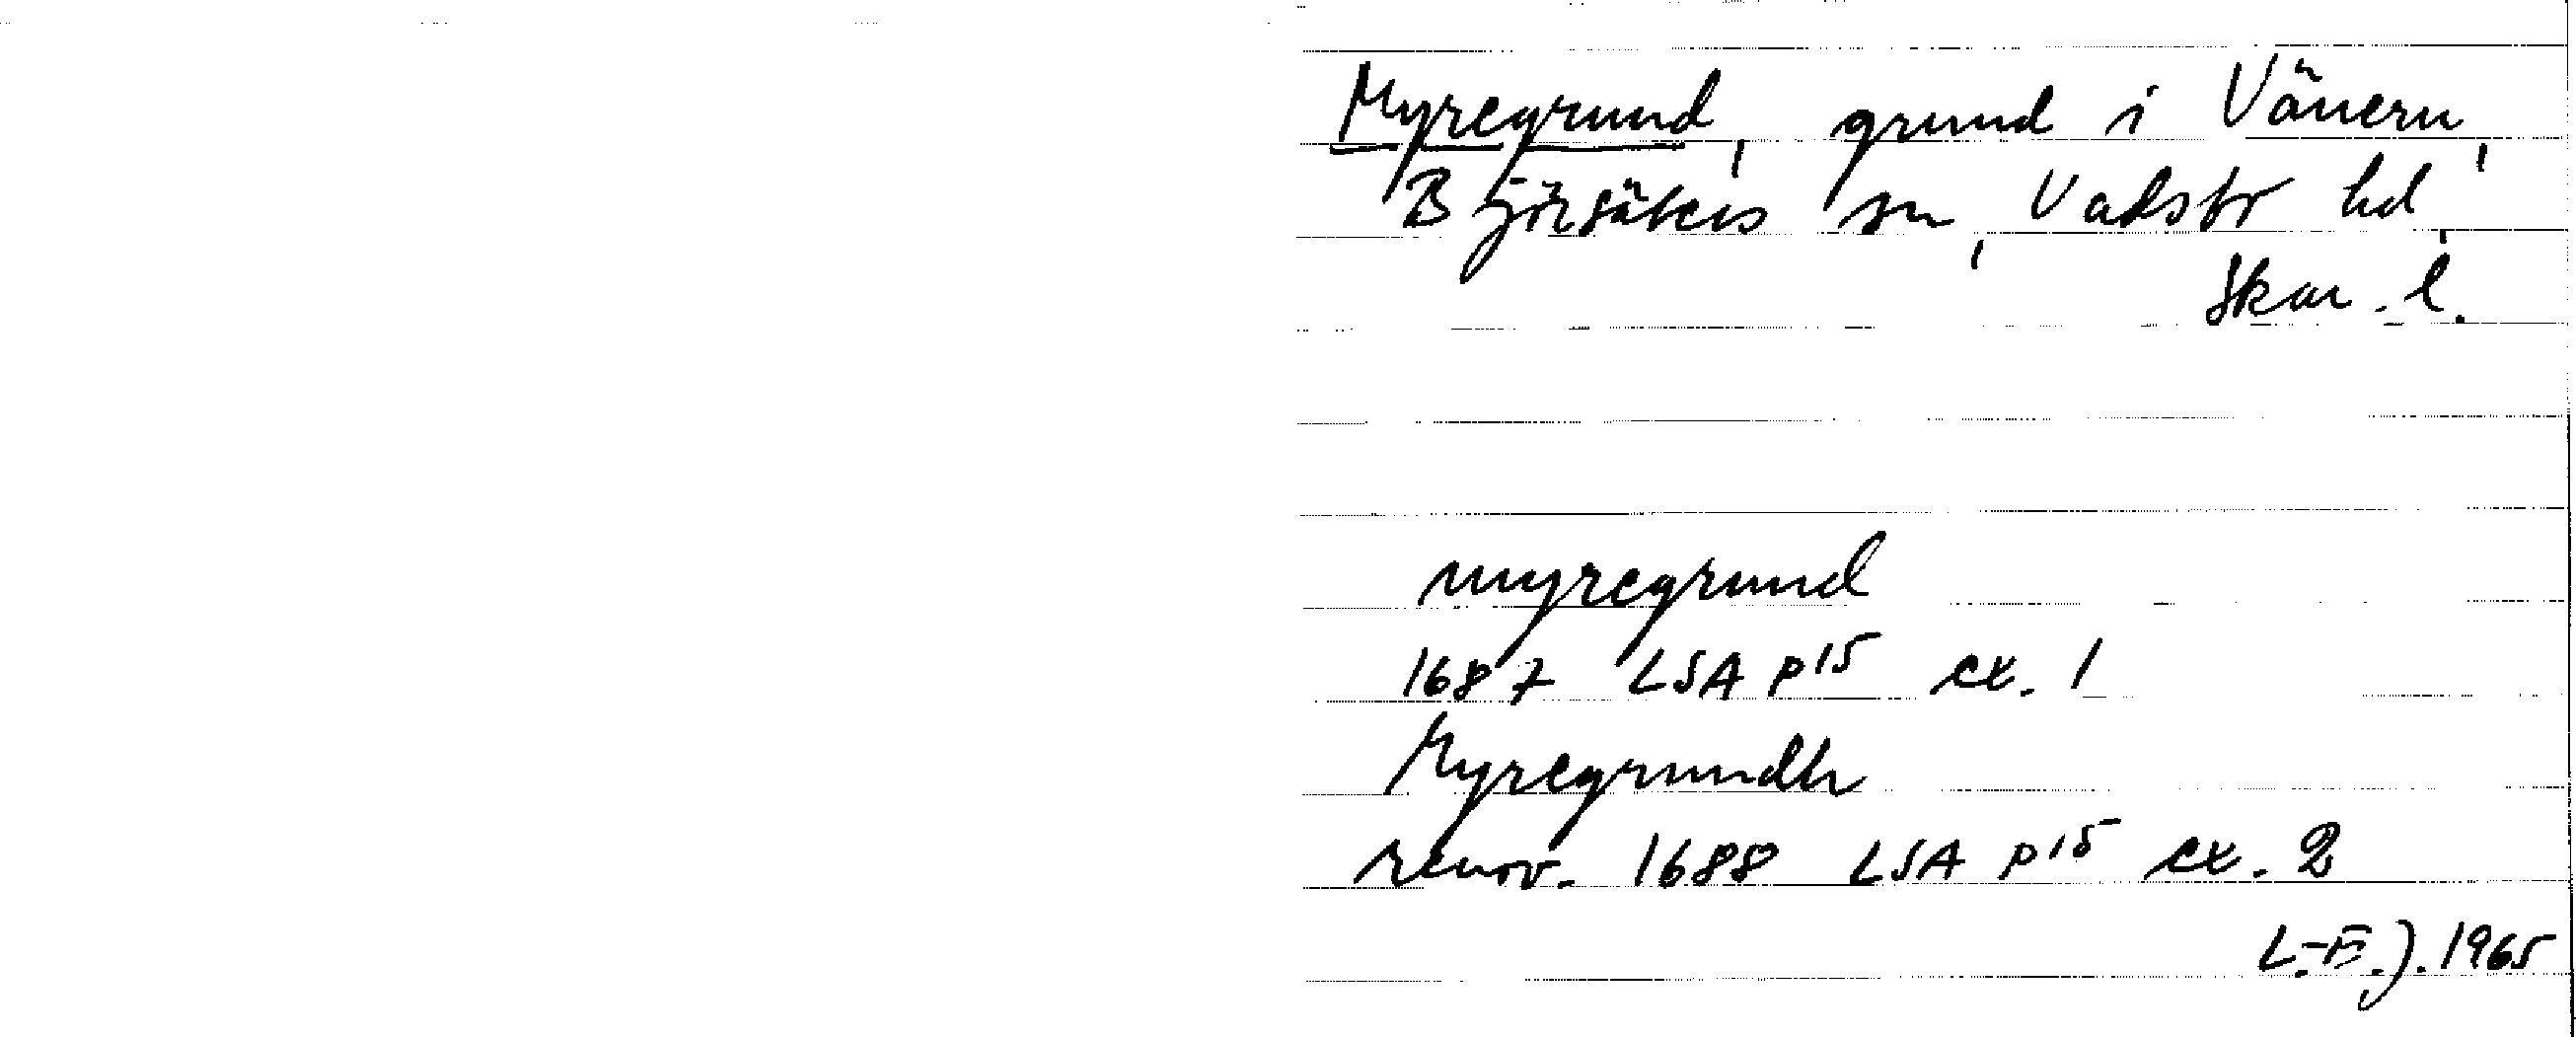 Myregrund, grund i Vänern,
Björsäters sn, Vadsbr hd,
Skar. l.
myregrund
1687 LSA P15 ex. 1
Myregrundh
renov. 1688 LSA P15 ex. 2
L.-E. J. 1965